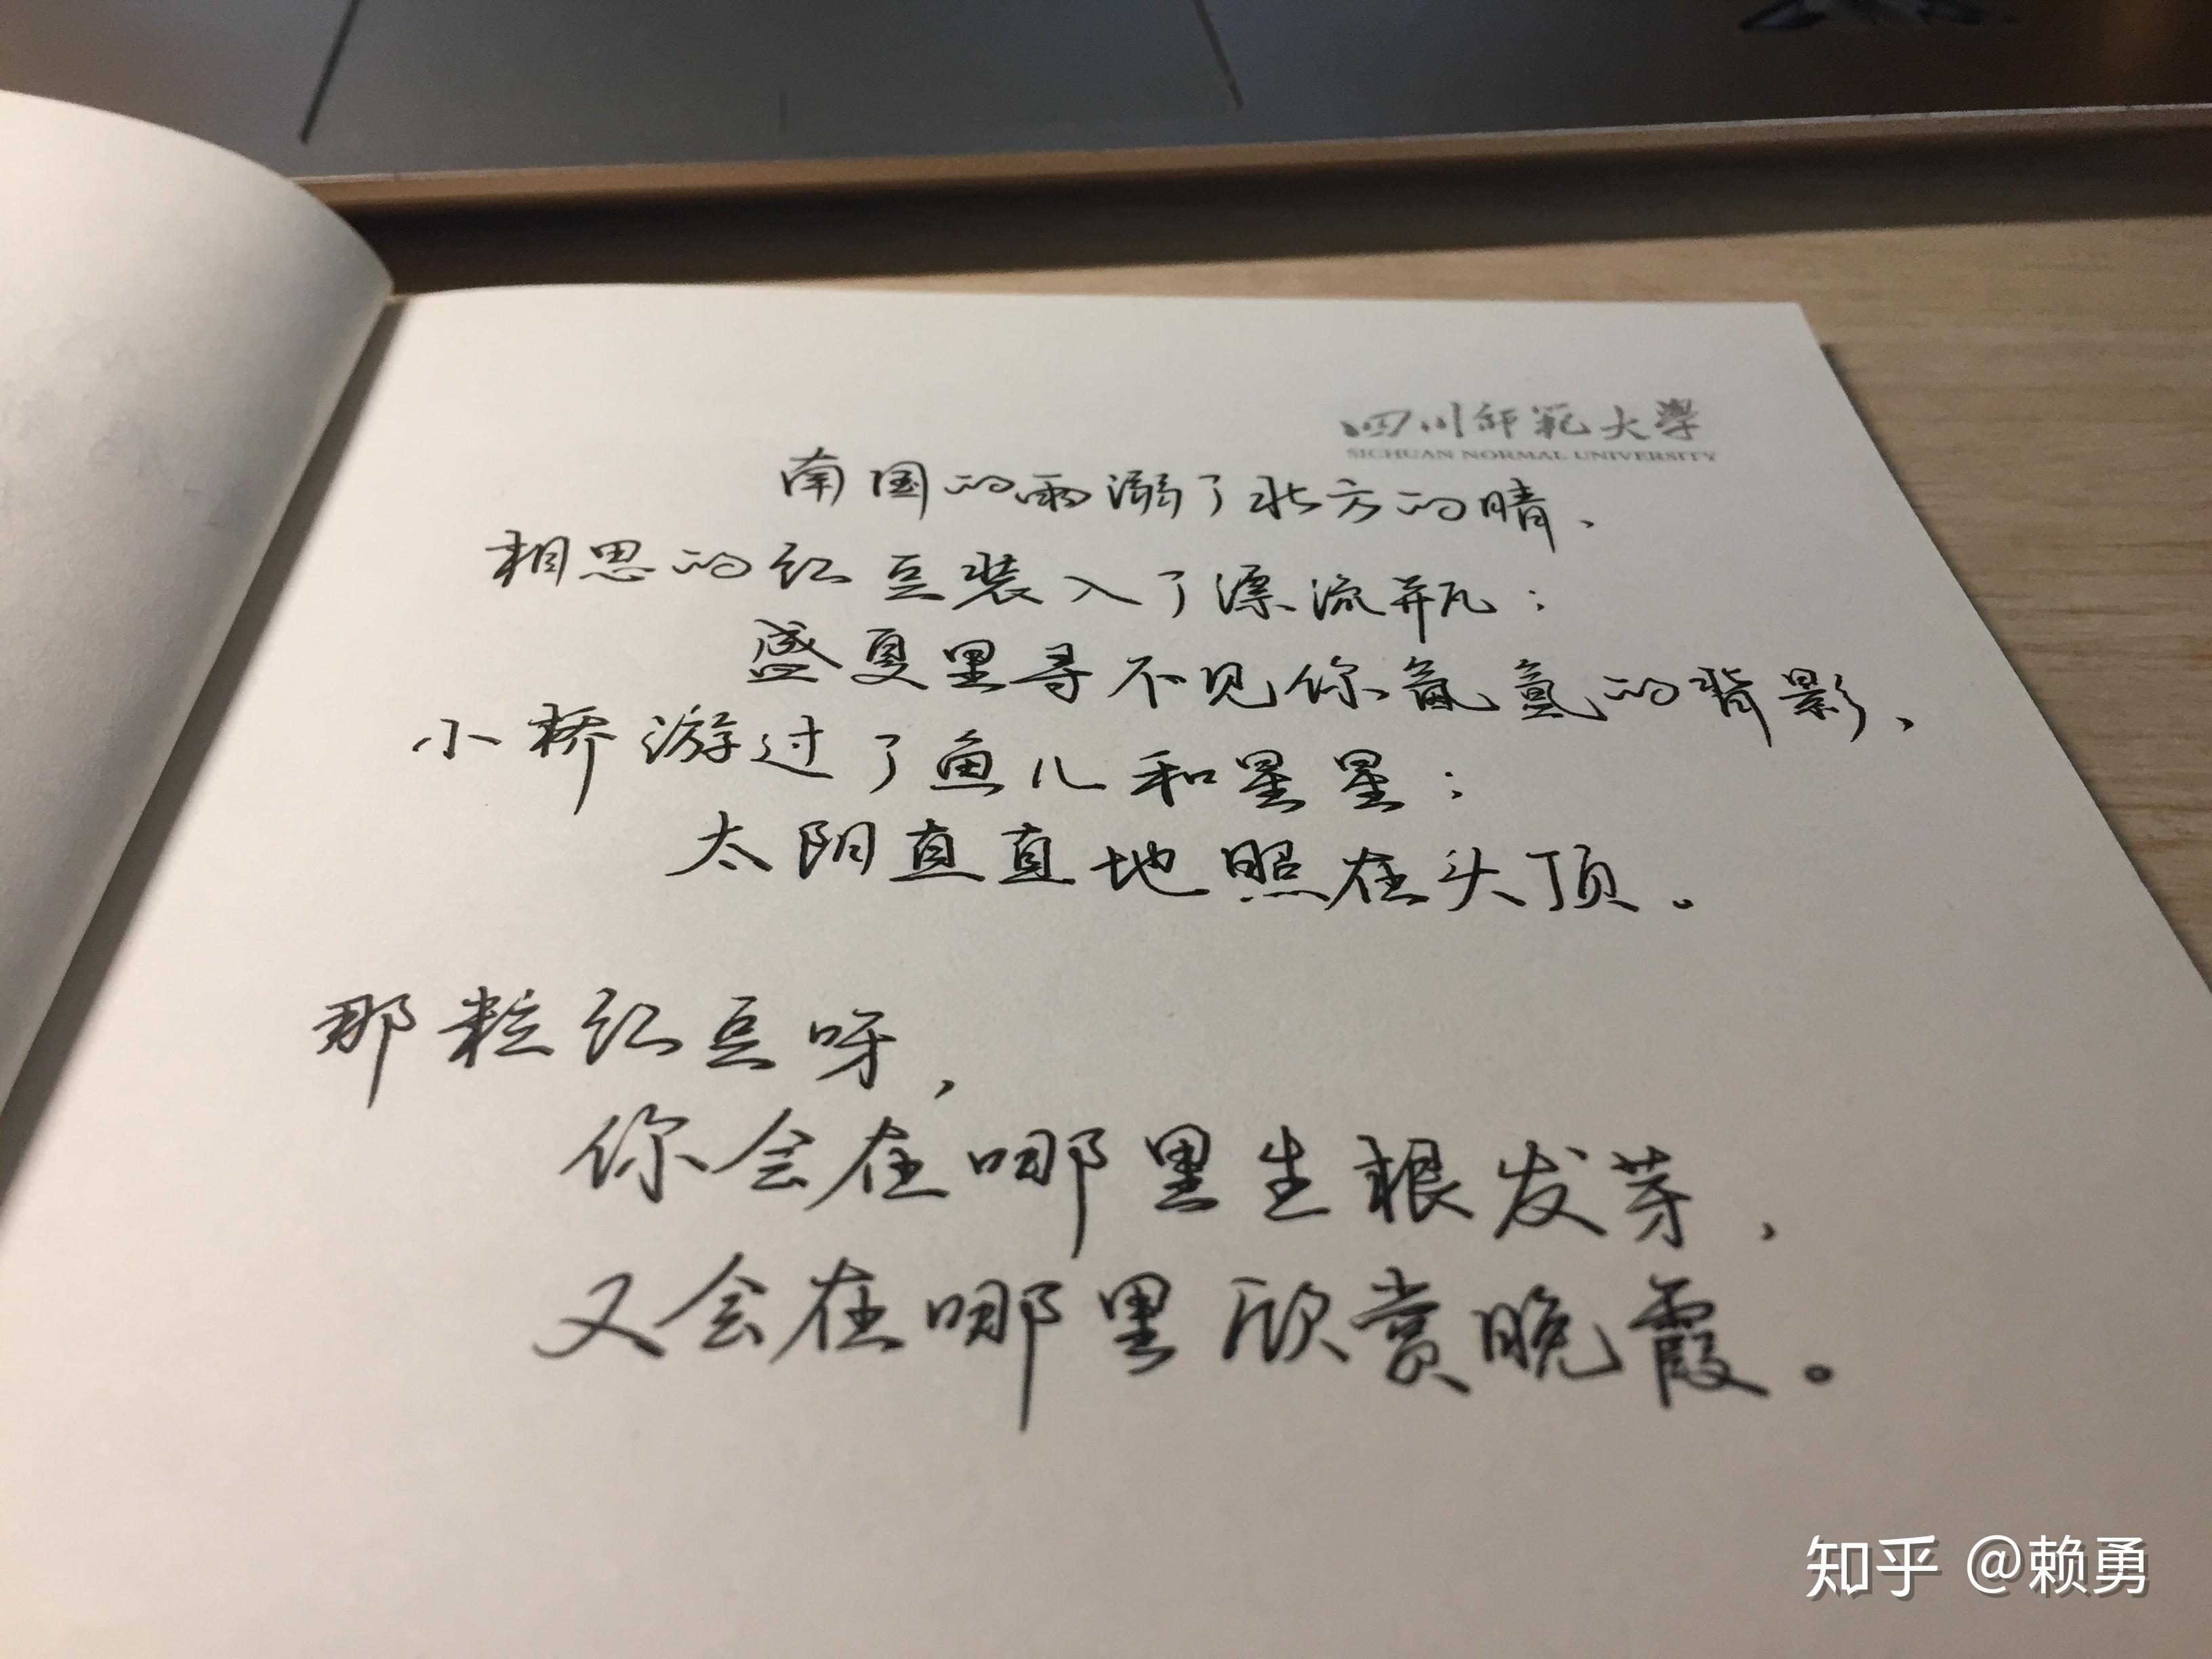 四川师范大學
SICHUAN NORMAL UNIVERSITY
南国的雨溺了北方的晴、
相思的红豆装入了漂流瓶;
盛夏里寻不见你氤氲的背影、
小桥游过了鱼儿和星星;
太阴直直地照在头顶。
那粒红豆呀,
你会在哪里生根发芽、
又会在哪里欣赏晚霞。
知乎 @赖勇